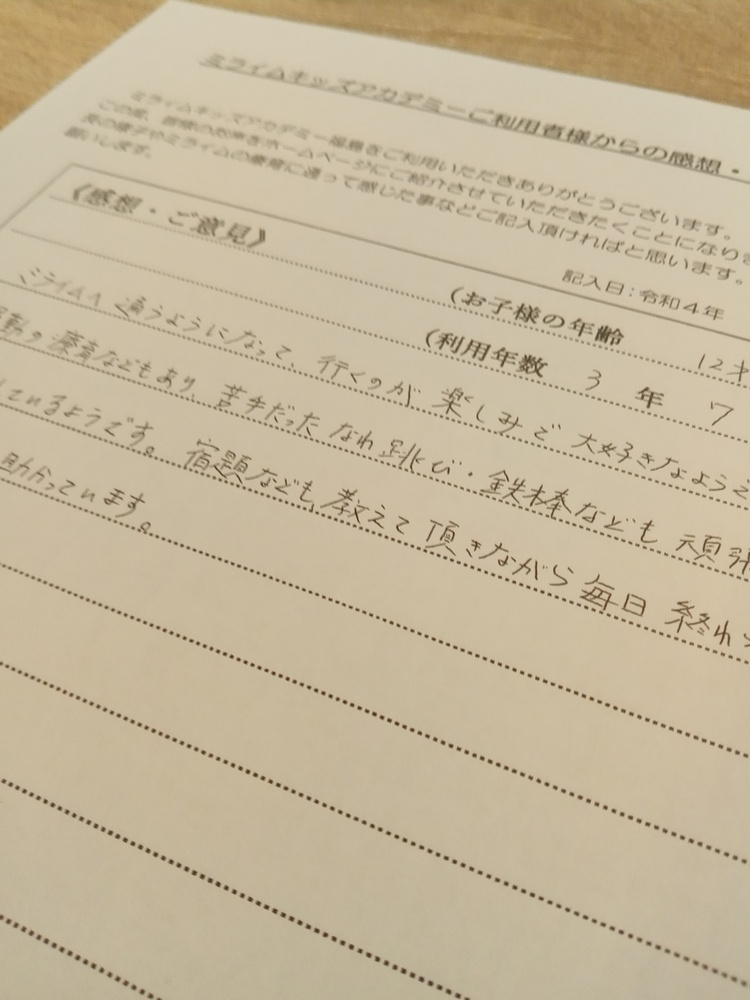 ミライムキッズアカデミーご利用者様からの感想・
ミライムキッズアカデミー福島をご利用いただきありがとうございます。
この度、皆様のお声をホームページにご紹介させていただきたくことになりま
様の様子やミライムの療育に通って感じた事などご記入頂ければと思います。
願いします。
記入日：令和４年
《感想・ご意見》
(お子様の年齢 12才
(利用年数 3 年 7
ミライムへ通うようになって、行くのが楽しみで大好きなようで
運動の療育などもあり、苦手だったなわ跳び・鉄棒なども頑張
しているようです。宿題なども教えて頂きながら毎日終わっ
助かっています。